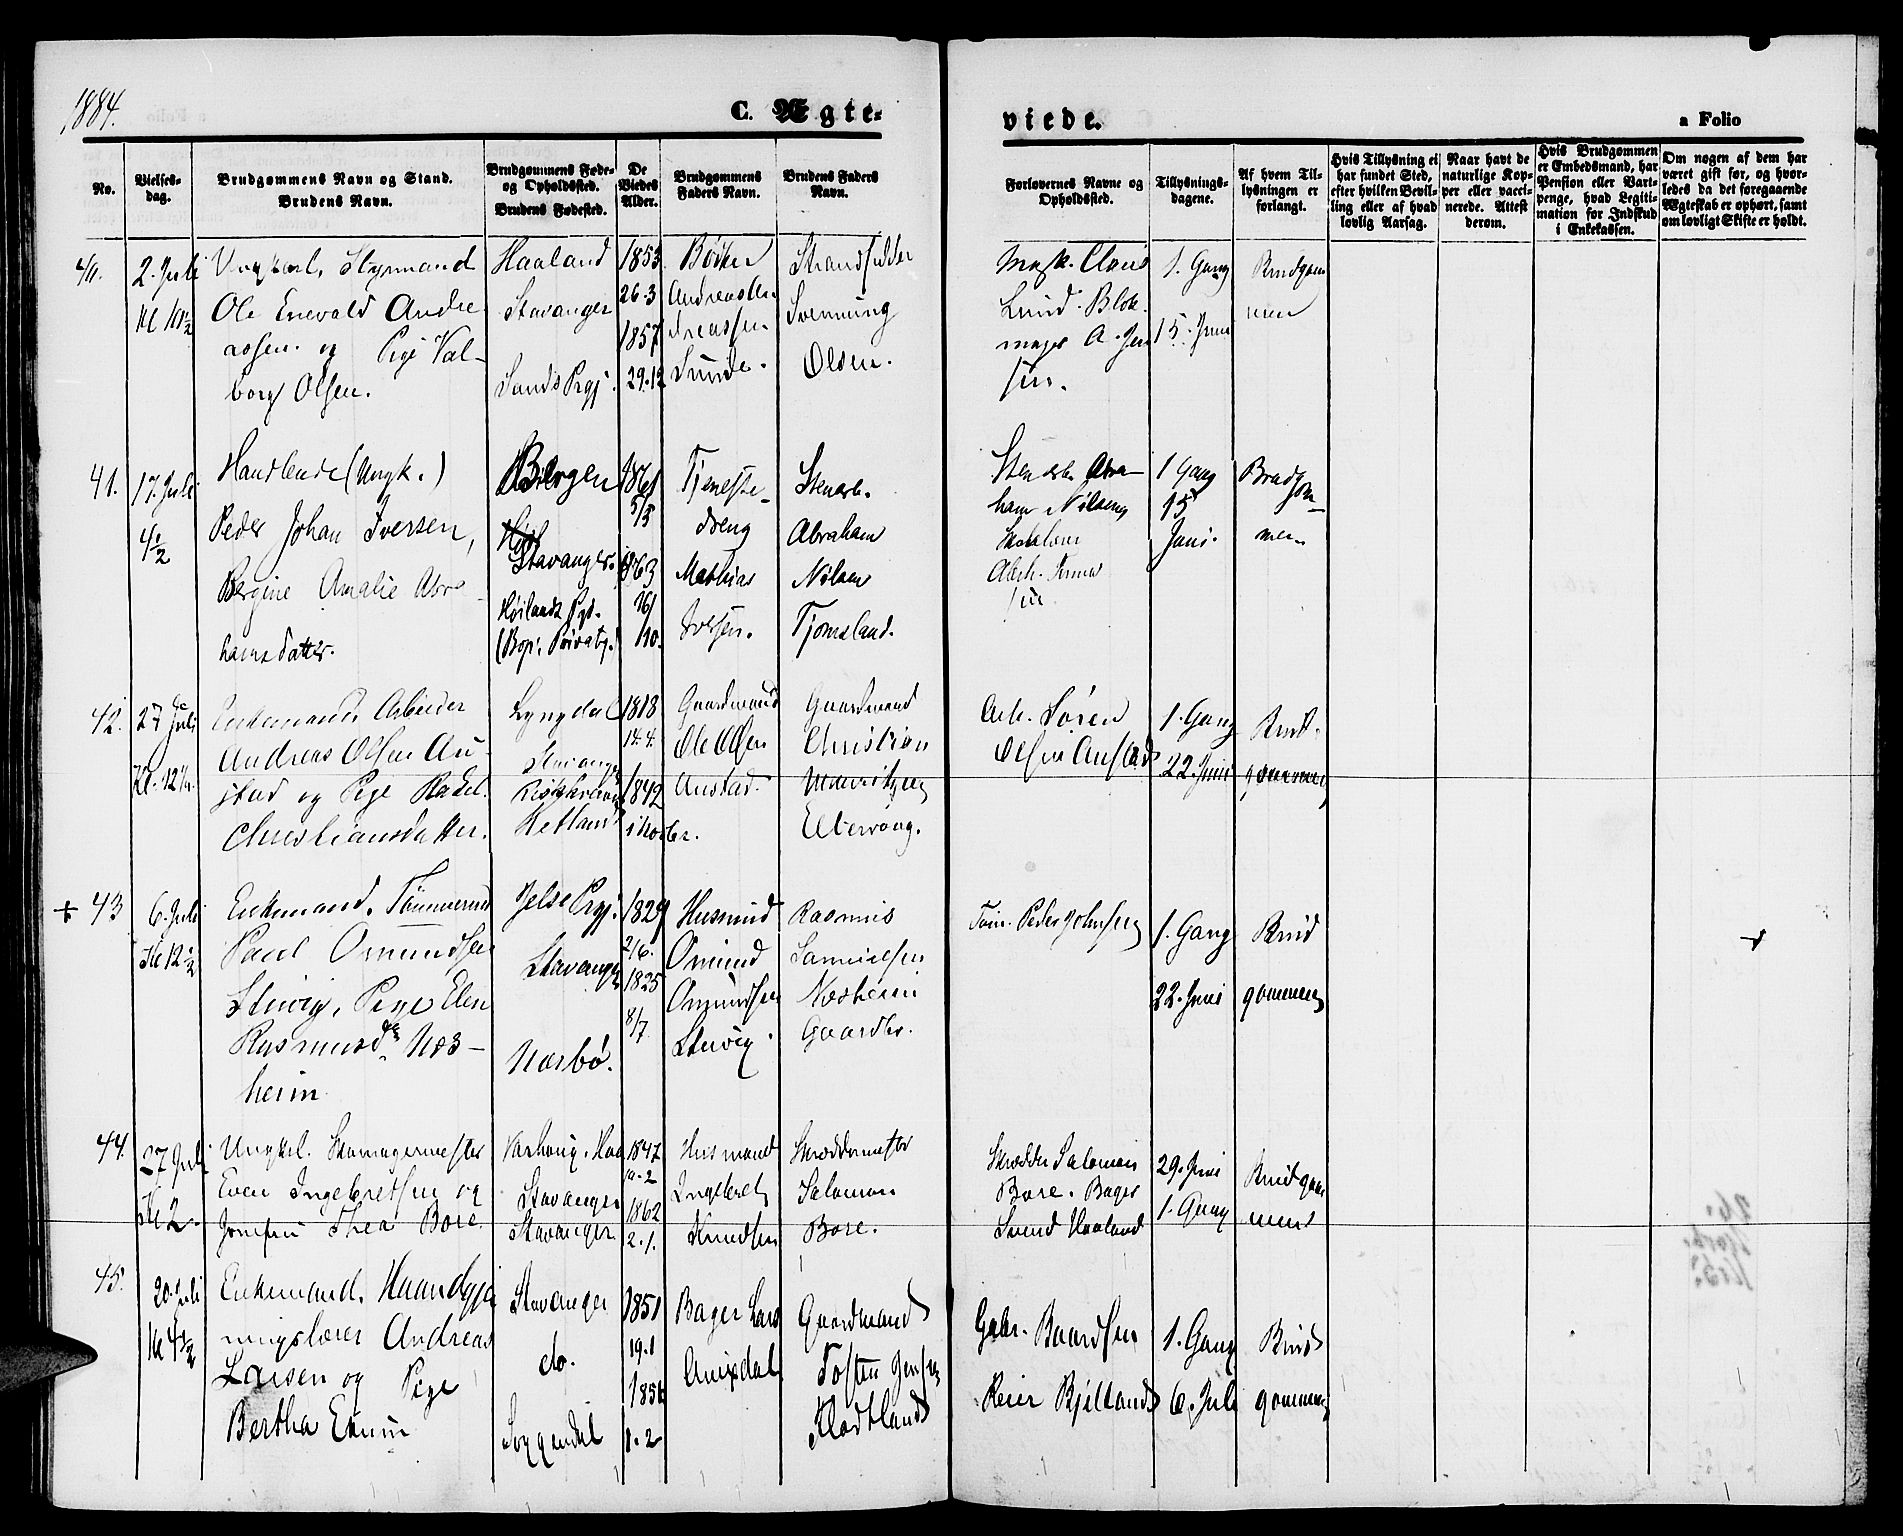 1884.
C. Ægte-
viede.
a Folio
No.
Vielses-
dag.
Brudgommens Navn og Stand.
Brudens Navn.
Brudgommens Føde-
og Opholdssted.
Brudens Fødested.
De
Viedes
Alder.
Brudgommens
Faders Navn.
Brudens Faders
Navn.
Forlovernes Navne og
Opholdssted.
Tillysnings-
dagene.
Af hvem Til-
lysningen er
forlangt.
Hvis Tillysning ei
har fundet Sted,
efter hvilken Bevil-
ling eller af hvad
lovlig Aarsag.
Naar havt de
naturlige Kop-
per eller vacci-
nerede. Attest
derom.
Hvis Brudgommen
er Embedsmand, har
Pension eller Vart-
penge, hvad Legiti-
mation for Indskud
i Enkekassen.
Om nogen af dem har
været gift før, og hvor-
ledes da det foregaaende
Ægteskab er ophørt, samt
om lovligt Skifte er holdt.
40.
2. Juli
Kl 10 1/2
Ungkarl, Styrmand
Ole Enevald Andre-
assen og Pige Val-
borg Olsen.
Haaland
Stavanger
Sands Prgj.
1853
26.3
1857
29.12
Bødker
Andreas An-
dreassen
Sunde.
Strandsidder
Svennung
Olsen.
Mask. Claus
Lund. Blok-
mager A. Jen
sen.
1. Gang
15. Juni
Brudgom
men
41.
17. Juli
4 1/2
Handlende (Ungk.)
Peder Johan Iversen,
Bergine Amalie Abra-
hamsdatter.
Bergen
Stavanger.
Høilands Pgd.
1861
5/5
1863
26/
10.
Tjeneste-
dreng
Mathias
Iversen.
Stenarb.
Abraham
Nilsen
Tjomsland.
Stenarb. Abra-
ham Nilsen
1 Gang
15
Juni.
Brudgom-
men
42.
27 Juli
Kl. 12 1/4
Enkemand, Arbeider
Andreas Olsen Au-
stad og Pige Rakel
Christiansdatter.
Lyngdal
Stavanger
1818
14.4.
1842
i Novbr.
Gaardmand
Ole Olsen
Austad.
Gaardmand
Christian
Arb. Søren
Olsen Austad
1. Gang
22. Juni
Brud-
gommen
+ 43
6. Juli
Kl 12 1/2
Enkemand, Tømmermd
Paul Omundsen
Stuvig, Pige Elen
Rasmusdtr Næs-
heim
Jelse Prgj.
Stavanger
Nærbø.
1829
2/6.
1825
8/7
Husmand
Omund
Omundsen
Stuvig.
Rasmus
Samuelsen
Næsheim
Gaardbr.
Tøm. Peder Johnsen
1. Gang
22. Juni
Brud
gommen
+
44.
27 Juli
Kl 2
Ungkl. Skomagermester
Even Ingebretsen og
Josefine Thea Bore.
Varhaug. Haa
Stavanger
Stavanger
1847
10.2
1862
2.1.
Husmand
Ingebret
Knudsen
Skræddermester
Salomon
Bore.
Skrædder Salomon
Bore. Bager
Svend Haaland
29. Juni
1. Gang
Brudgom
men
45.
20. Juli
Kl 4 1/2
Enkemand, Haandgjer
ningslærer Andreas
Larsen og Pige
Bertha
Stavanger
do.
Soggendal
1851
19.1
1856
1.2
Bager Lars
Gaardmand
Tosten Jensen
Gabr. Baardsen
Reier Bjelland
1. Gang
6. Juli
Brud
gommen